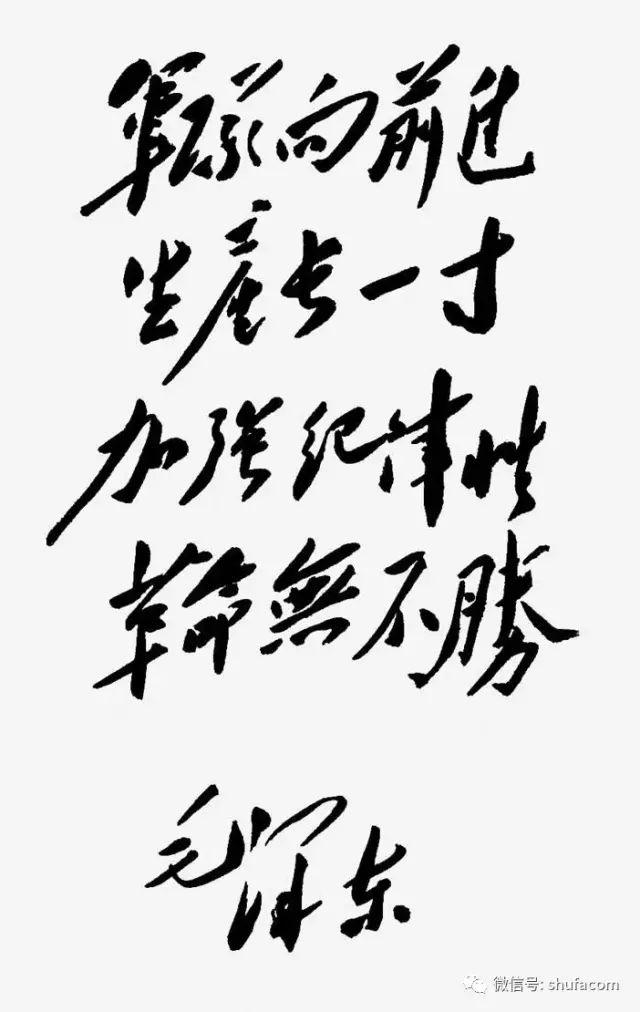 軍隊向前進
生産长一寸
加强纪律性
革命無不勝
毛泽东
微信号: shufacom